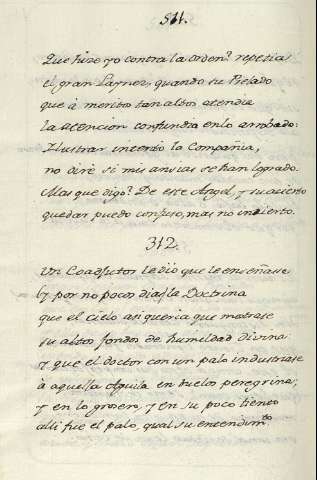 311.
Que hize yo contra la orden? repetia
el gran Laynez, quando su Prelado
que à meritos tan altos atendia
la atencion confundia en lo arrobado:
Ilustrar intentò la Compañia,
no dirè si mis ansias se han logrado.
Mas que digo? De este Angel, y su acierto
quedar puedo confuso, mas no incierto.
312.
Un Coadjutor le diò que le enseñasse
(y por no pocos dias) la Doctrina
que el cielo asi queria que mostrase
su altos fondos de humildad divina:
y que el doctor con un palo industriase
à aquella Aguila en buelo peregrina,
y en lo grosero, y en su poco tiento
alli fue el palo, qual su entendim.to